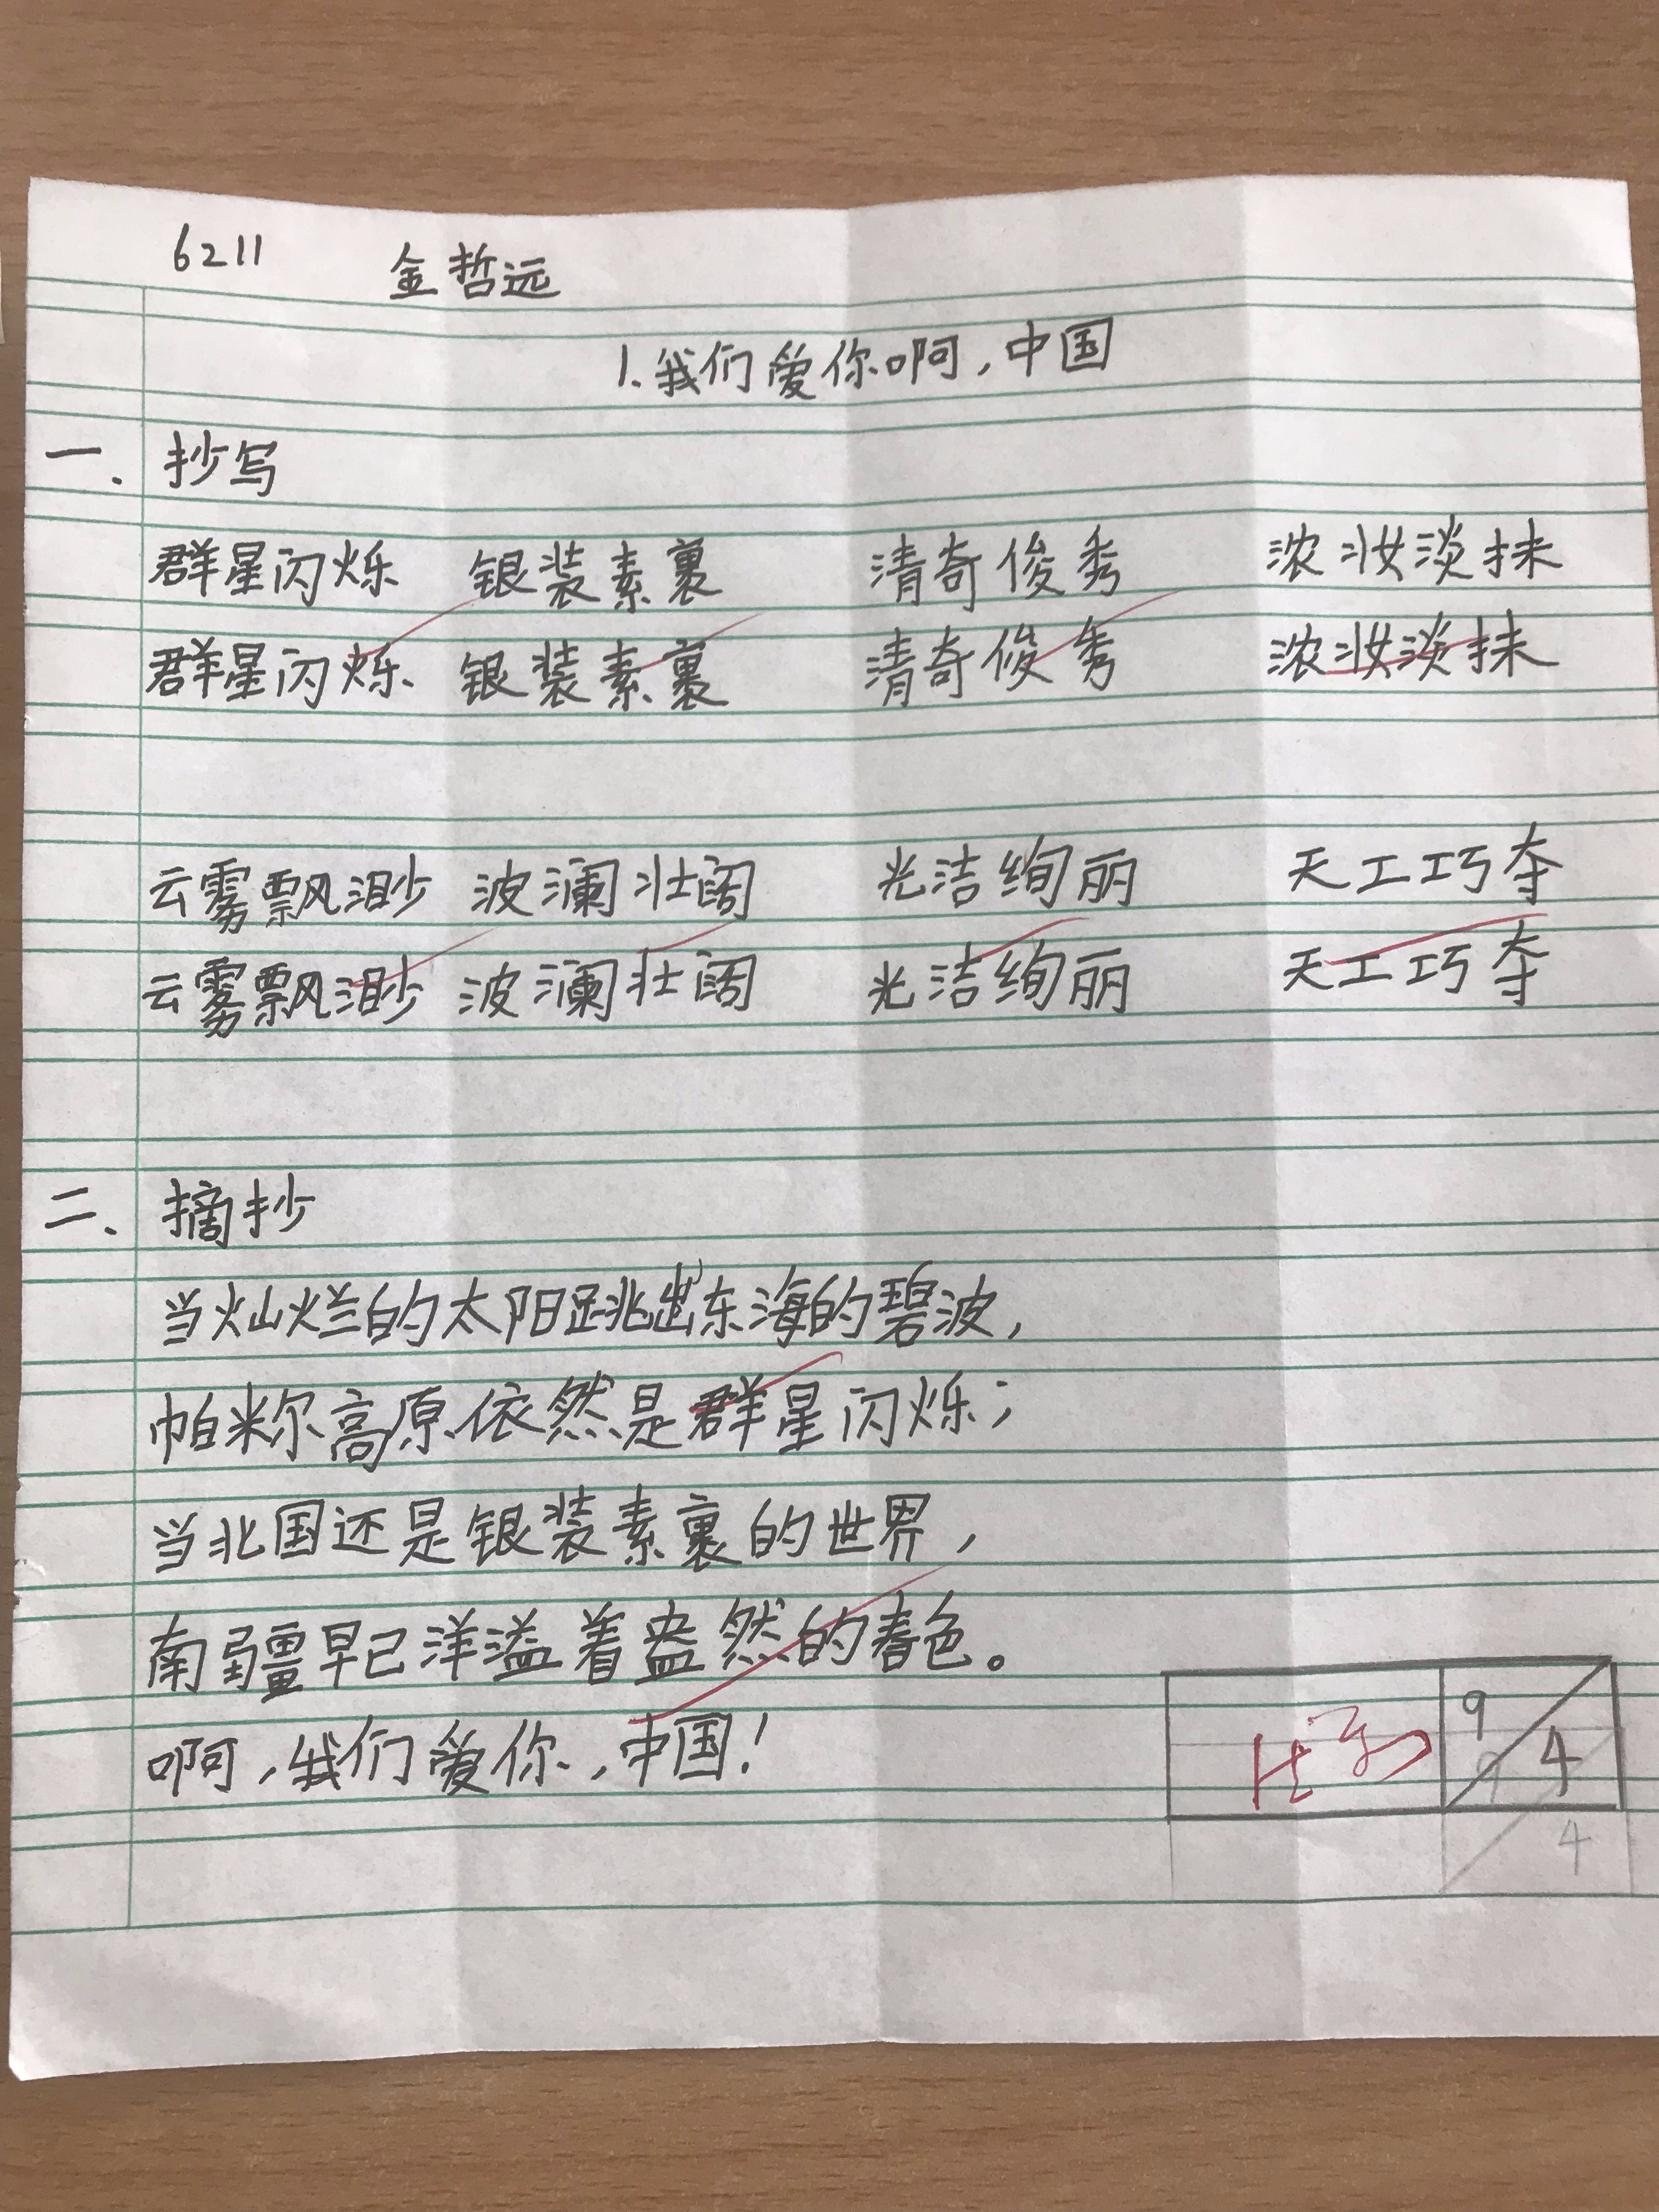 6211 金哲远
1.我们爱你啊,中国
一、抄写
群星闪烁 银装素裹 清奇俊秀 浓妆淡抹
群星闪烁 银装素裹 清奇俊秀 浓妆淡抹
云雾飘渺 波澜壮阔 光洁绚丽 天工巧夺
云雾飘渺 波澜壮阔 光洁绚丽 天工巧夺
二、摘抄
当灿烂的太阳跳出东海的碧波,
帕米尔高原依然是群星闪烁;
当北国还是银装素裹的世界,
南疆早已洋溢着盎然的春色。
啊,我们爱你,中国!
9 4
9
4